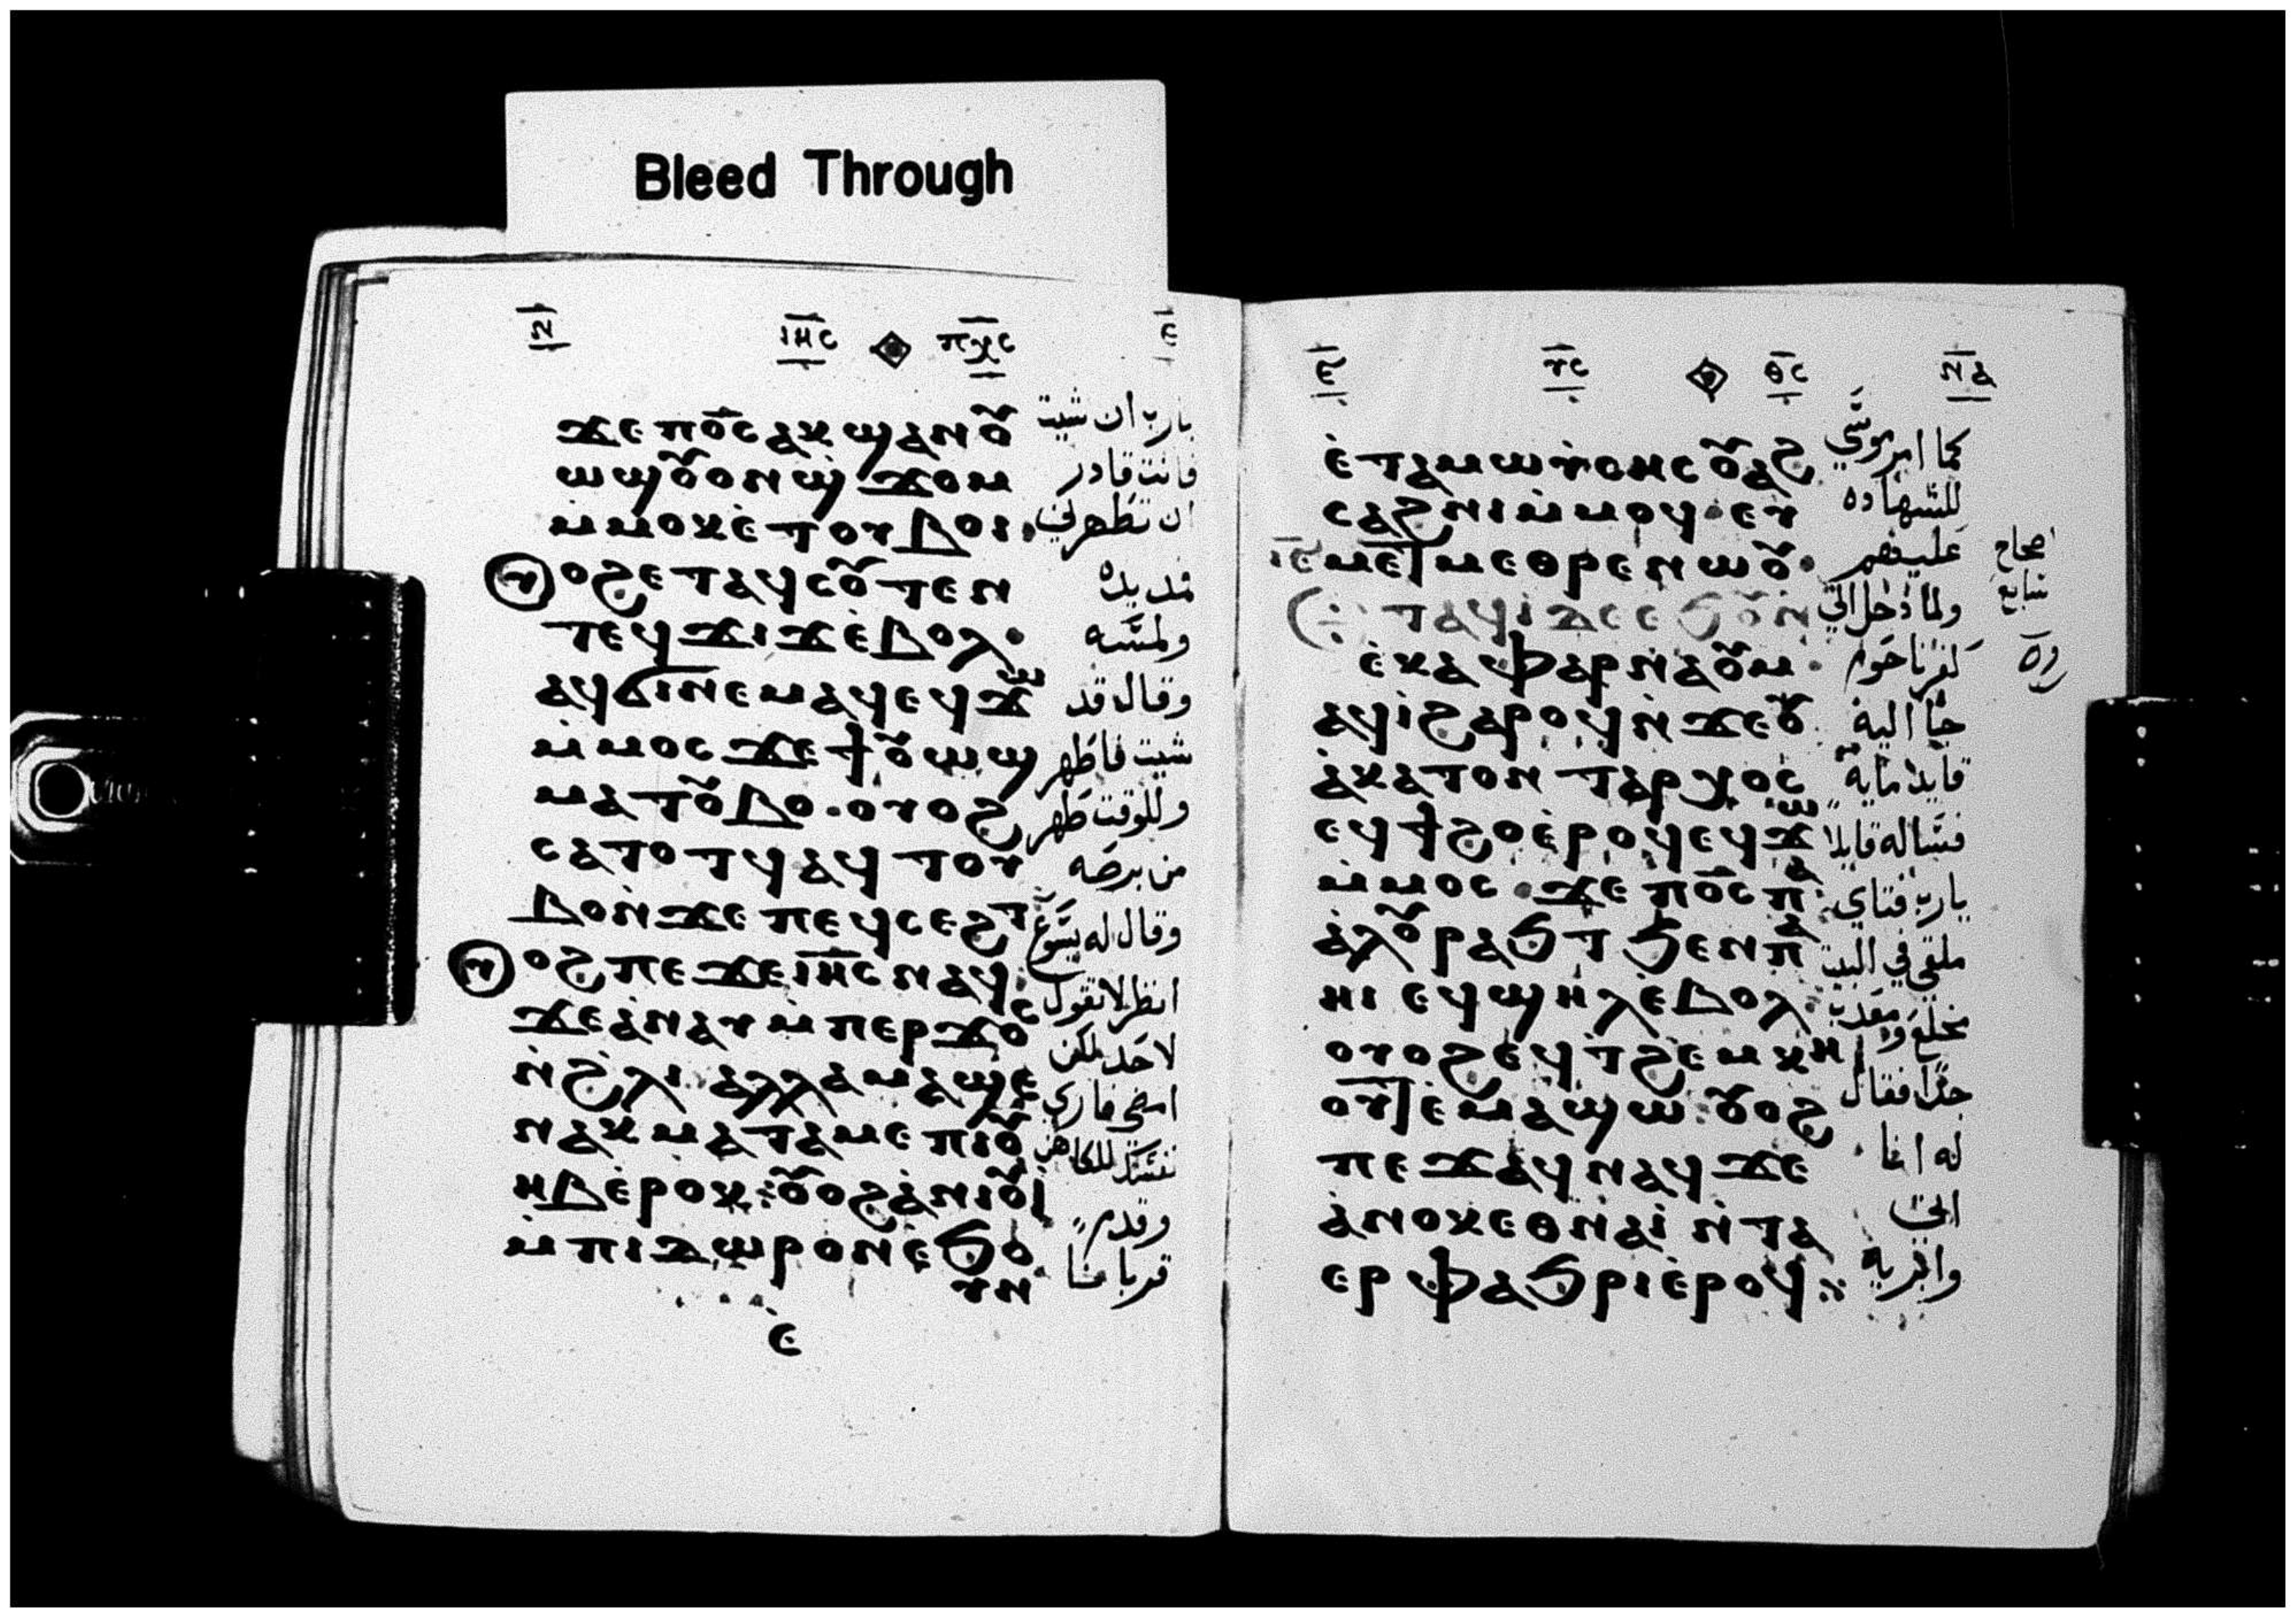 Bleed Through
ⲛ̅ ⲓⲏ̅ⲥ ⲡⲭ̅ⲥ ⲉ̅
ϫⲉ ⲡⲟ̅ⲥ ⲁⲕϣⲁⲛⲟⲩ يارب ان شيت
ⲱϣ ⲟⲩⲟⲛ ϣ̀ϫⲟⲙ فانت قادر
ⲙ̀ⲙⲟⲕ ⲉ̀ⲧⲟⲩⲃⲟⲓ. ان تطهرني
ⲟⲩⲟϩ ⲉⲧⲁϥⲥⲟⲩⲧⲉⲛ فمد يده
ⲧⲉϥϫⲓϫ ⲉ̀ⲃⲟⲗ. ولمسه
ⲁϥϭⲓⲛⲉⲙⲁϥ ⲉϥϫⲱ وقال قد
ⲙ̀ⲙⲟⲥ ϫⲉ ϯⲟⲩⲱϣ شيت فاطهر
ⲙⲁⲧⲟⲩⲃⲟ. ⲟⲩⲟϩ وللوقت طهر
ⲥⲁⲧⲟⲧϥ ⲁϥⲧⲟⲩ من برصه
ⲃⲟ ⲛ̀ϫⲉ ⲡⲉϥⲥⲉϩⲧ وقال له يسوع
ⲟⲩⲟϩ ⲡⲉϫⲉ ⲓⲏ̅ⲥ ⲛⲁϥ. انظر لا تقول
ϫⲉ ⲁ̀ⲛⲁⲩ ⲙ̀ⲡⲉⲣϫⲟⲥ لاحد لكن
ⲛ̀ϩⲗⲓ ⲁⲗⲗⲁ ⲙⲁϣⲉ امضي فاري
ⲛⲁⲕ ⲙⲁⲧⲁⲙⲉ ⲡⲓⲟⲩ نفسك للكاهن
ⲏⲃ ⲉ̀ⲣⲟⲕ: ⲟⲩⲟϩ ⲁ̀ⲛⲓⲟⲩⲓ وقدم
ⲙ̀ⲡⲓⲇⲱⲣⲟⲛ ⲉ̀ϧⲟⲩⲛ قربانا
ⲉ̀
ⲉ̅ ⲩ̅ⲥ ⲑ̅ⲥ ⲛ̅ⲁ
ⲉ̀ⲧⲁ ⲙⲱⲩ̀ⲥⲏⲥ ⲟⲩⲁϩ كما امر موسي
ⲥⲁϩⲛⲓ ⲙ̀ⲙⲟϥ. ⲉⲩ للشهاده
ⲙⲉⲧⲙⲉⲑⲣⲉ ⲛⲱⲟⲩ. عليهم اصحاح
ⲧⲁϥⲓ̀ ⲇⲉ ⲉϧⲟⲩⲛ ولما دخل الي سابع
ⲉ̀ⲕⲁⲫⲁⲣⲛⲁⲟⲩⲙ. كفرناحوم
ⲁϥⲓ̀ ϩⲁⲣⲟϥ ⲛ̀ϫⲉ ⲟⲩ جا اليه
ⲁ̀ⲕⲁⲧⲟⲛⲧⲁⲣⲭⲟⲥ قايد مايه
ⲉϥϯϩⲟ ⲉ̀ⲣⲟϥ ⲉϥϫⲱ فساله قايلا
ⲙ̀ⲙⲟⲥ. ϫⲉ ⲡⲟ̅ⲥ ⲡⲁ يارب فتاي
ⲁ̀ⲗⲟⲩ ⲣⲁϧⲧ ϧⲉⲛ ⲡⲁ ملقي في البيت
ⲏⲓ ⲉϥϣⲏⲗ ⲉ̀ⲃⲟⲗ. مخلع ومعذب
ⲟⲩⲟϩ ⲉϥⲧϩⲉⲙⲕⲏ جدا فقال
ⲟⲩⲧ ⲉ̀ⲙⲁϣⲱ. ⲟⲩⲟϩ له انا
ⲡⲉϫⲁϥ ⲛⲁϥ ϫⲉ اتي
ⲁ̀ⲛⲟⲕ ⲉⲑⲛⲁⲓ̀ ⲛ̀ⲧⲁ وابريه
ⲉⲣⲫⲁϧⲣⲓ ⲉ̀ⲣⲟϥ: